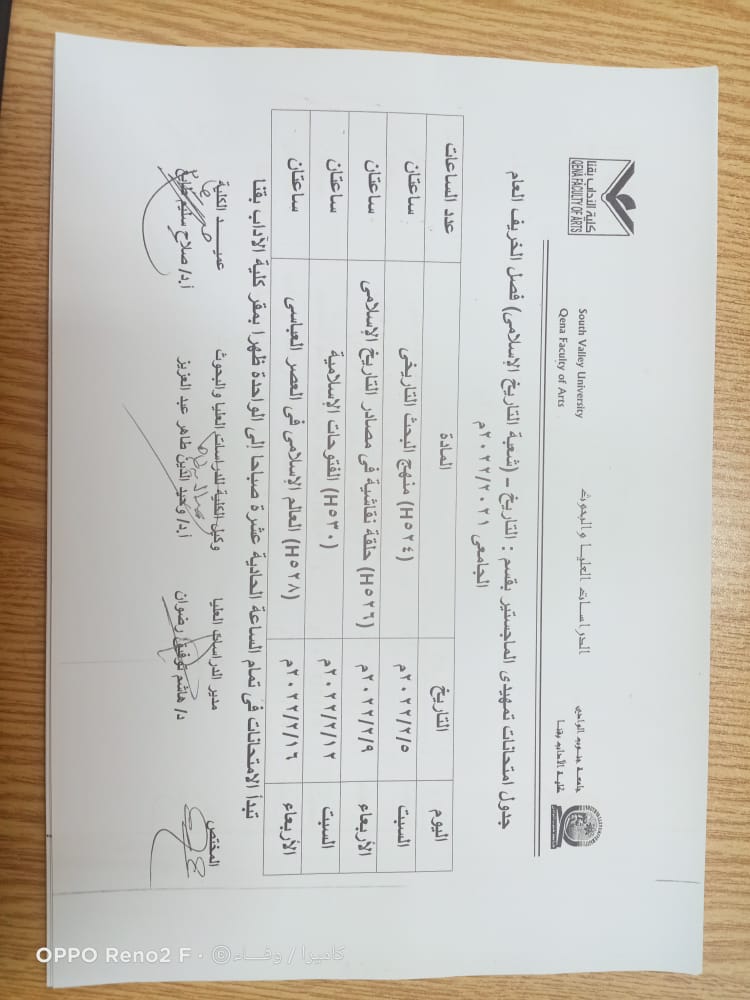 جامعة جنوب الوادي
كلية الآداب بقنا
الدراسات العليا والبحوث
South Valley University
Qena Faculty of Arts
كلية الآداب بقنا
QENA FACULTY OF ARTS
جدول امتحانات تمهيدى الماجستير بقسم : التاريخ – (شعبة التاريخ الإسلامى) فصل الخريف العام
الجامعى ٢٠٢٢/٢٠٢١م
اليوم التاريخ المادة عدد الساعات
السبت ٢٠٢٢/٢/٥م (H٥٢٤) منهج البحث التاريخى ساعتان
الأربعاء ٢٠٢٢/٢/٩م (H٥٢٦) حلقة نقاشية فى مصادر التاريخ الإسلامى ساعتان
السبت ٢٠٢٢/٢/١٢م (H٥٣٠) الفتوحات الإسلامية ساعتان
الأربعاء ٢٠٢٢/٢/١٦م (H٥٢٨) العالم الإسلامى فى العصر العباسى ساعتان
تبدأ الامتحانات فى تمام الساعة الحادية عشرة صباحا إلى الواحدة ظهرا بمقر كلية الآداب بقنا
المختص مدير الدراسات العليا وكيل الكلية للدراسات العليا والبحوث عميد الكلية
د/ هاشم توفيق رضوان أ.د/ وحيد الدين طاهر عبد العزيز أ.د/ صلاح سليم طايع
OPPO Reno2 F · ©كاميرا / وفاء